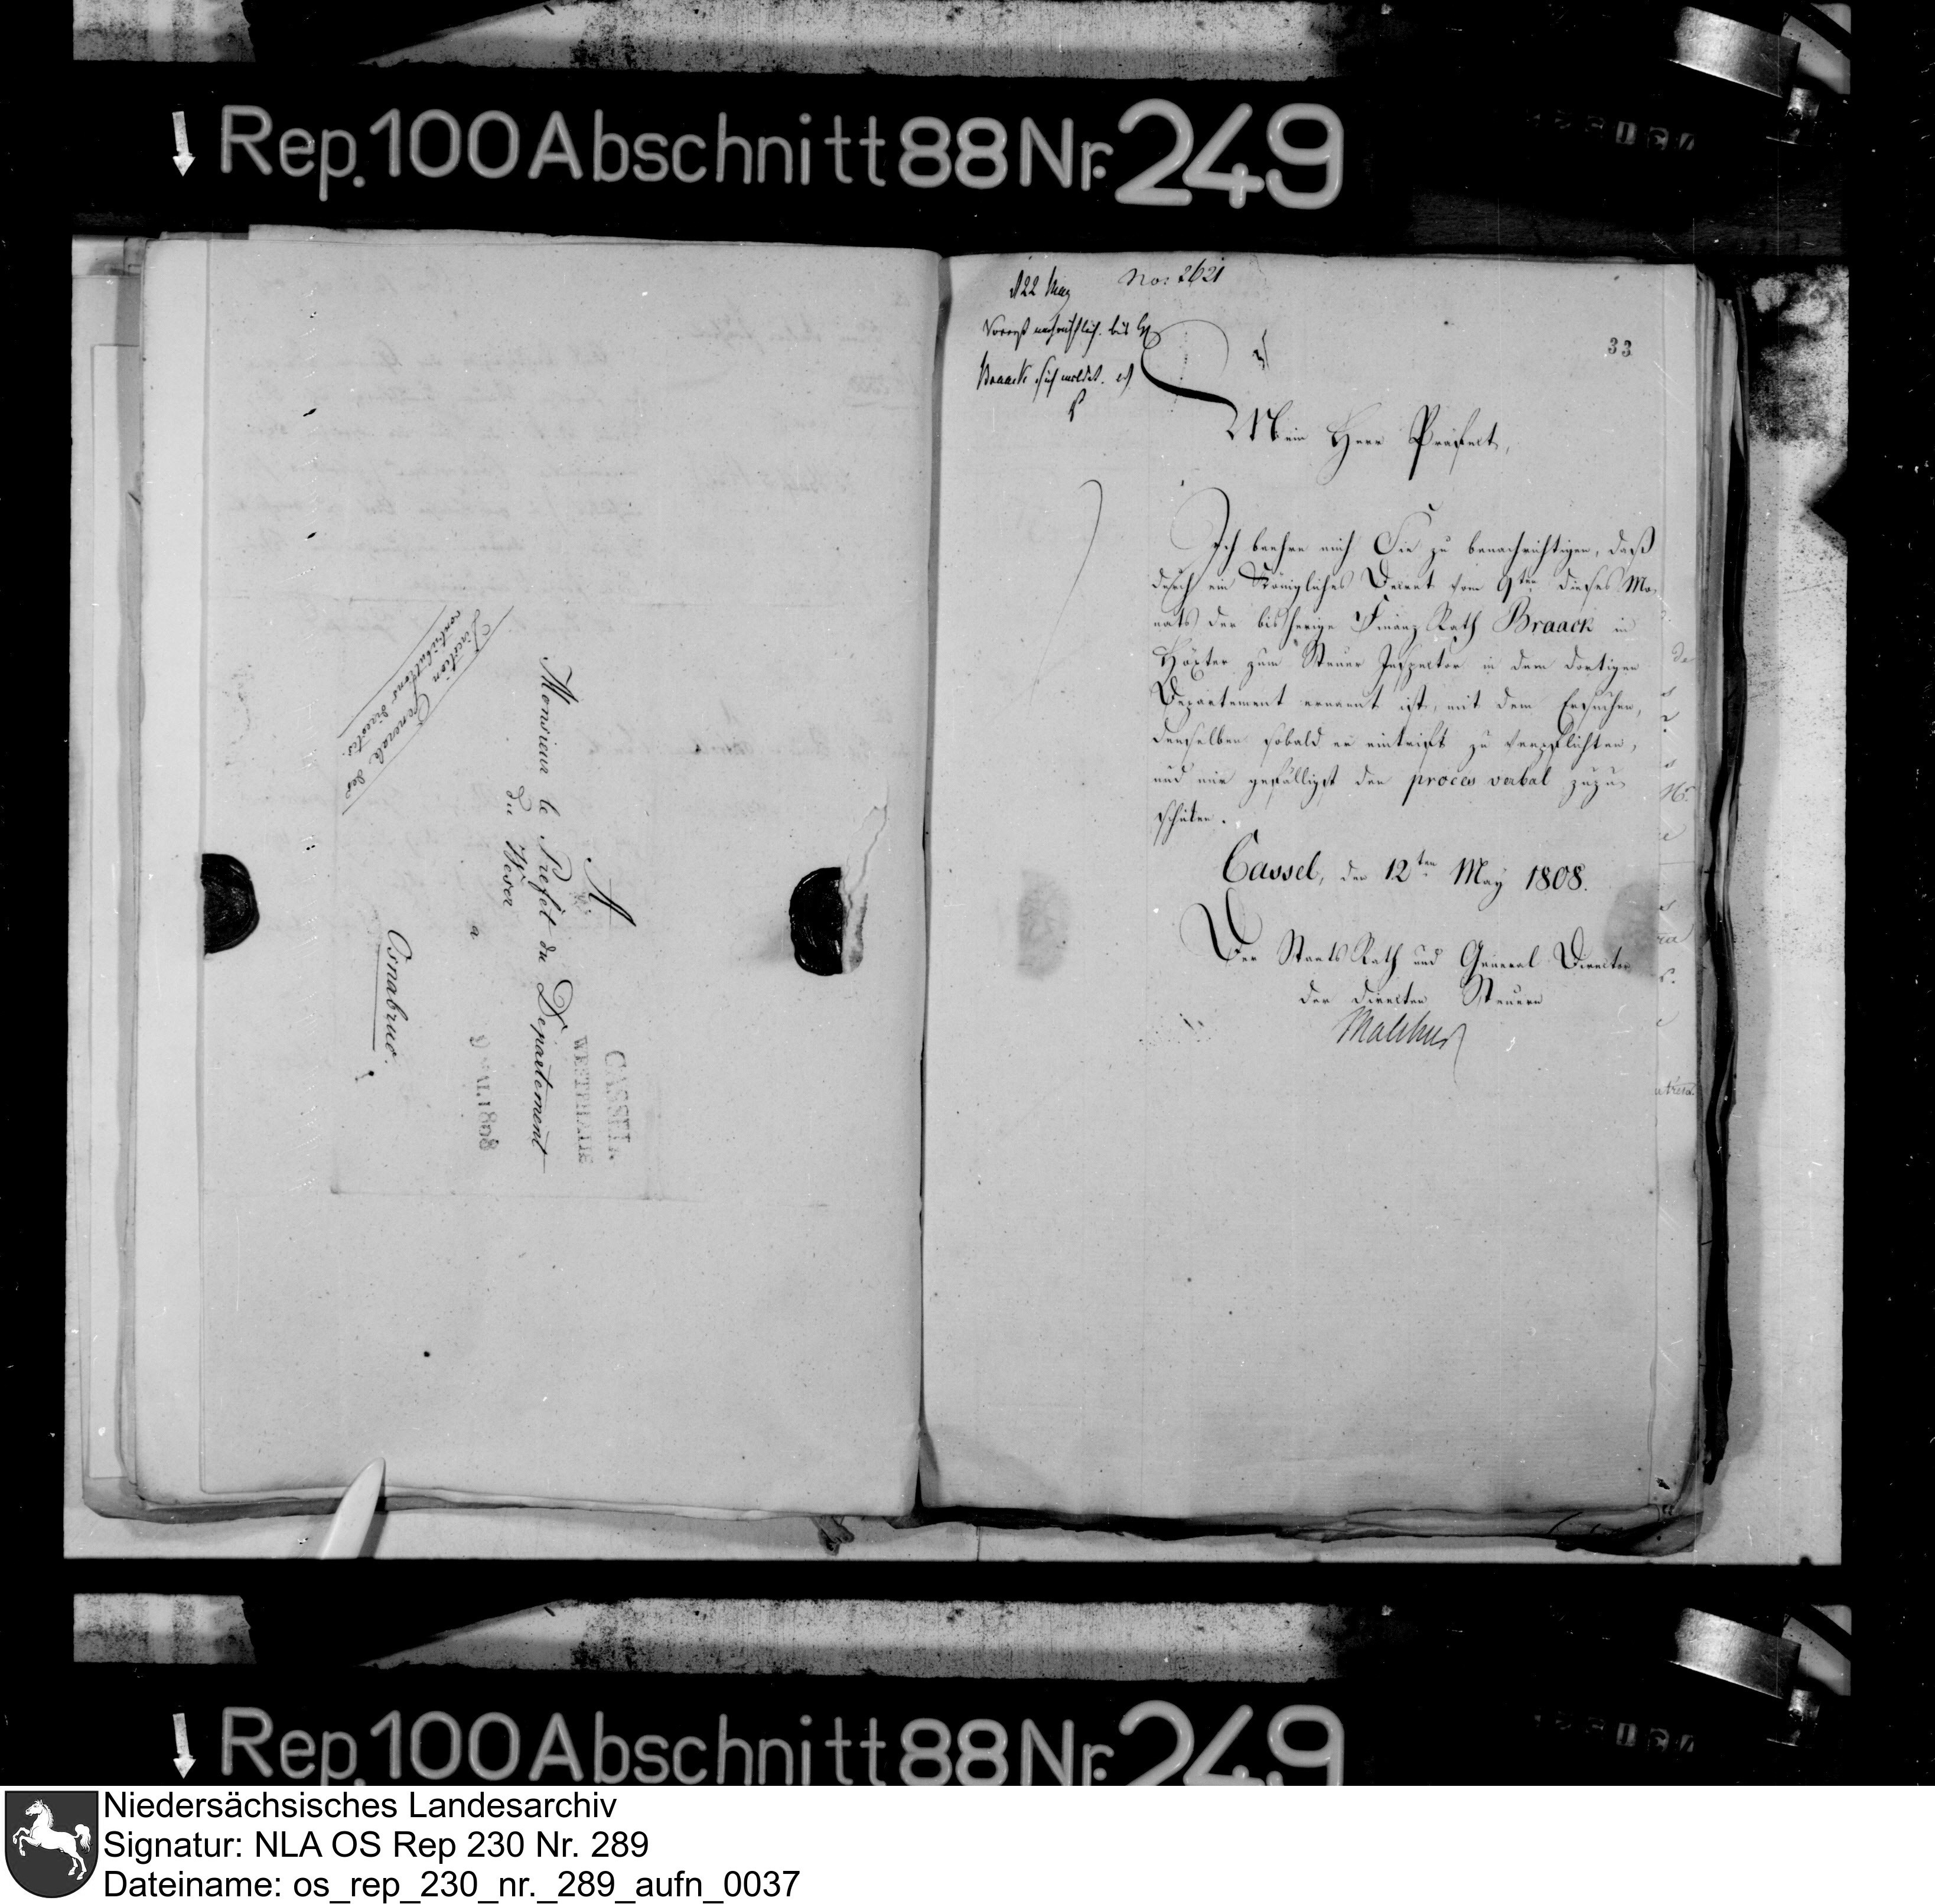 Rep. 100 Abschnitt 88 Nr. 249
Direction Generale des
contributions directes.
A
Monsieur le Prefet du Departement
du Weser
a
Osnabruc.
CASSEL
WESTPHALIE
MAI. 1808
d 22 May
No: 2621
bis H
Braack sich meldet.
33
Mein Herr Präfect,
Ich beehre mich Sie zu benachrichtigen, daß
durch ein Königliches Decret vom 9ten dieses Mo-
nats der bisherige Finanz Rath Braack in
Höxter zum Steuer Inspector in dem dortigen
Departement ernannt ist, mit dem Ersuchen,
denselben sobald er eintrift zu verpflichten,
und mir gefälligst den proces verbal zuzu-
schicken.
Cassel, den 12ten May 1808.
Der Staats Rath und General Director
der directen Steuern
Malchus
Rep. 100 Abschnitt 88 Nr. 249
Niedersächsisches Landesarchiv
Signatur: NLA OS Rep 230 Nr. 289
Dateiname: os_rep_230_nr._289_aufn_0037